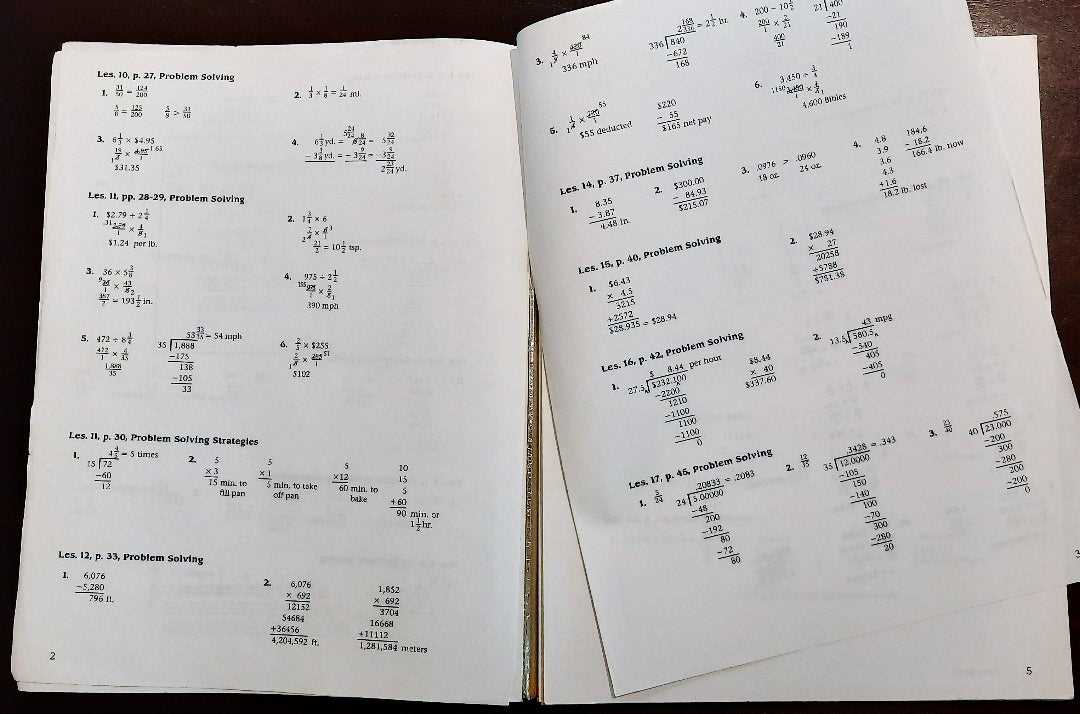 Les. 10, p. 27, Problem Solving
1. 31/50 = 124/200
5/8 = 125/200 5/8 > 31/50
2. 1/3 × 1/8 = 1/24 mi.
3. 6 1/3 × $4.95
$31.35
4. 6 1/3 yd. = 6 8/24 = 5 32/24
− 3 3/8 yd. = − 3 9/24 = − 3 9/24
2 23/24 yd.
Les. 11, pp. 28-29, Problem Solving
1. $2.79 ÷ 2 1/4
$1.24 per lb.
2. 1 3/4 × 6
21/2 = 10 1/2 tsp.
3. 36 × 5 3/8
387/2 = 193 1/2 in.
4. 975 ÷ 2 1/2
390 mph
5. 472 ÷ 8 3/4
472/1 × 4/35
1,888/35
53 33/35 = 54 mph
35 1,888
−175
138
−105
33
6. 2/5 × $255
$102
Les. 11, p. 30, Problem Solving Strategies
1. 4 4/5 = 5 times
15 72
−60
12
2. 5
×3
15 min. to
fill pan
5
×1
5 min. to take
off pan
5
×12
60 min. to
bake
10
15
5
+60
90 min. or
1 1/2 hr.
Les. 12, p. 33, Problem Solving
1. 6,076
−5,280
796 ft.
2. 6,076
× 692
12152
54684
+36456
4,204,592 ft.
1,852
× 692
3704
16668
+11112
1,281,584 meters
2
3.
336 mph
336 840
−672
168
= 2 1/2 hr.
4.
200/1 × 2/21
400/21
21 400
−21
190
−189
1
5.
$55 deducted
$220
− 55
$165 net pay
6. 3,450 ÷ 3/4
4,600 Bibles
Les. 14, p. 37, Problem Solving
1. 8.35
− 3.87
4.48 in.
2. $300.00
− 84.93
$215.07
3. .0976 > .0960
18 oz. 24 oz.
4. 4.8
3.9
3.6
4.3
+1.6
18.2 lb. lost
184.6
− 18.2
166.4 lb. now
Les. 15, p. 40, Problem Solving
1. $6.43
× 4.5
3215
+2572
$28.935 = $28.94
2. $28.94
× 27
20258
+5788
$781.38
Les. 16, p. 42, Problem Solving
1. $ 8.44 per hour
27.5 $232.100
−2200
1210
−1100
1100
−1100
0
$8.44
× 40
$337.60
2. 43 mpg
13.5 580.5
−540
405
−405
0
Les. 17, p. 45, Problem Solving
1. 5/24
.20833 = .2083
24 5.00000
−48
200
−192
80
−72
80
2. 12/35
.3428 = .343
35 12.0000
−105
150
−140
100
−70
300
−280
20
3. 23/40
.575
40 23.000
−200
300
−280
200
−200
0
5